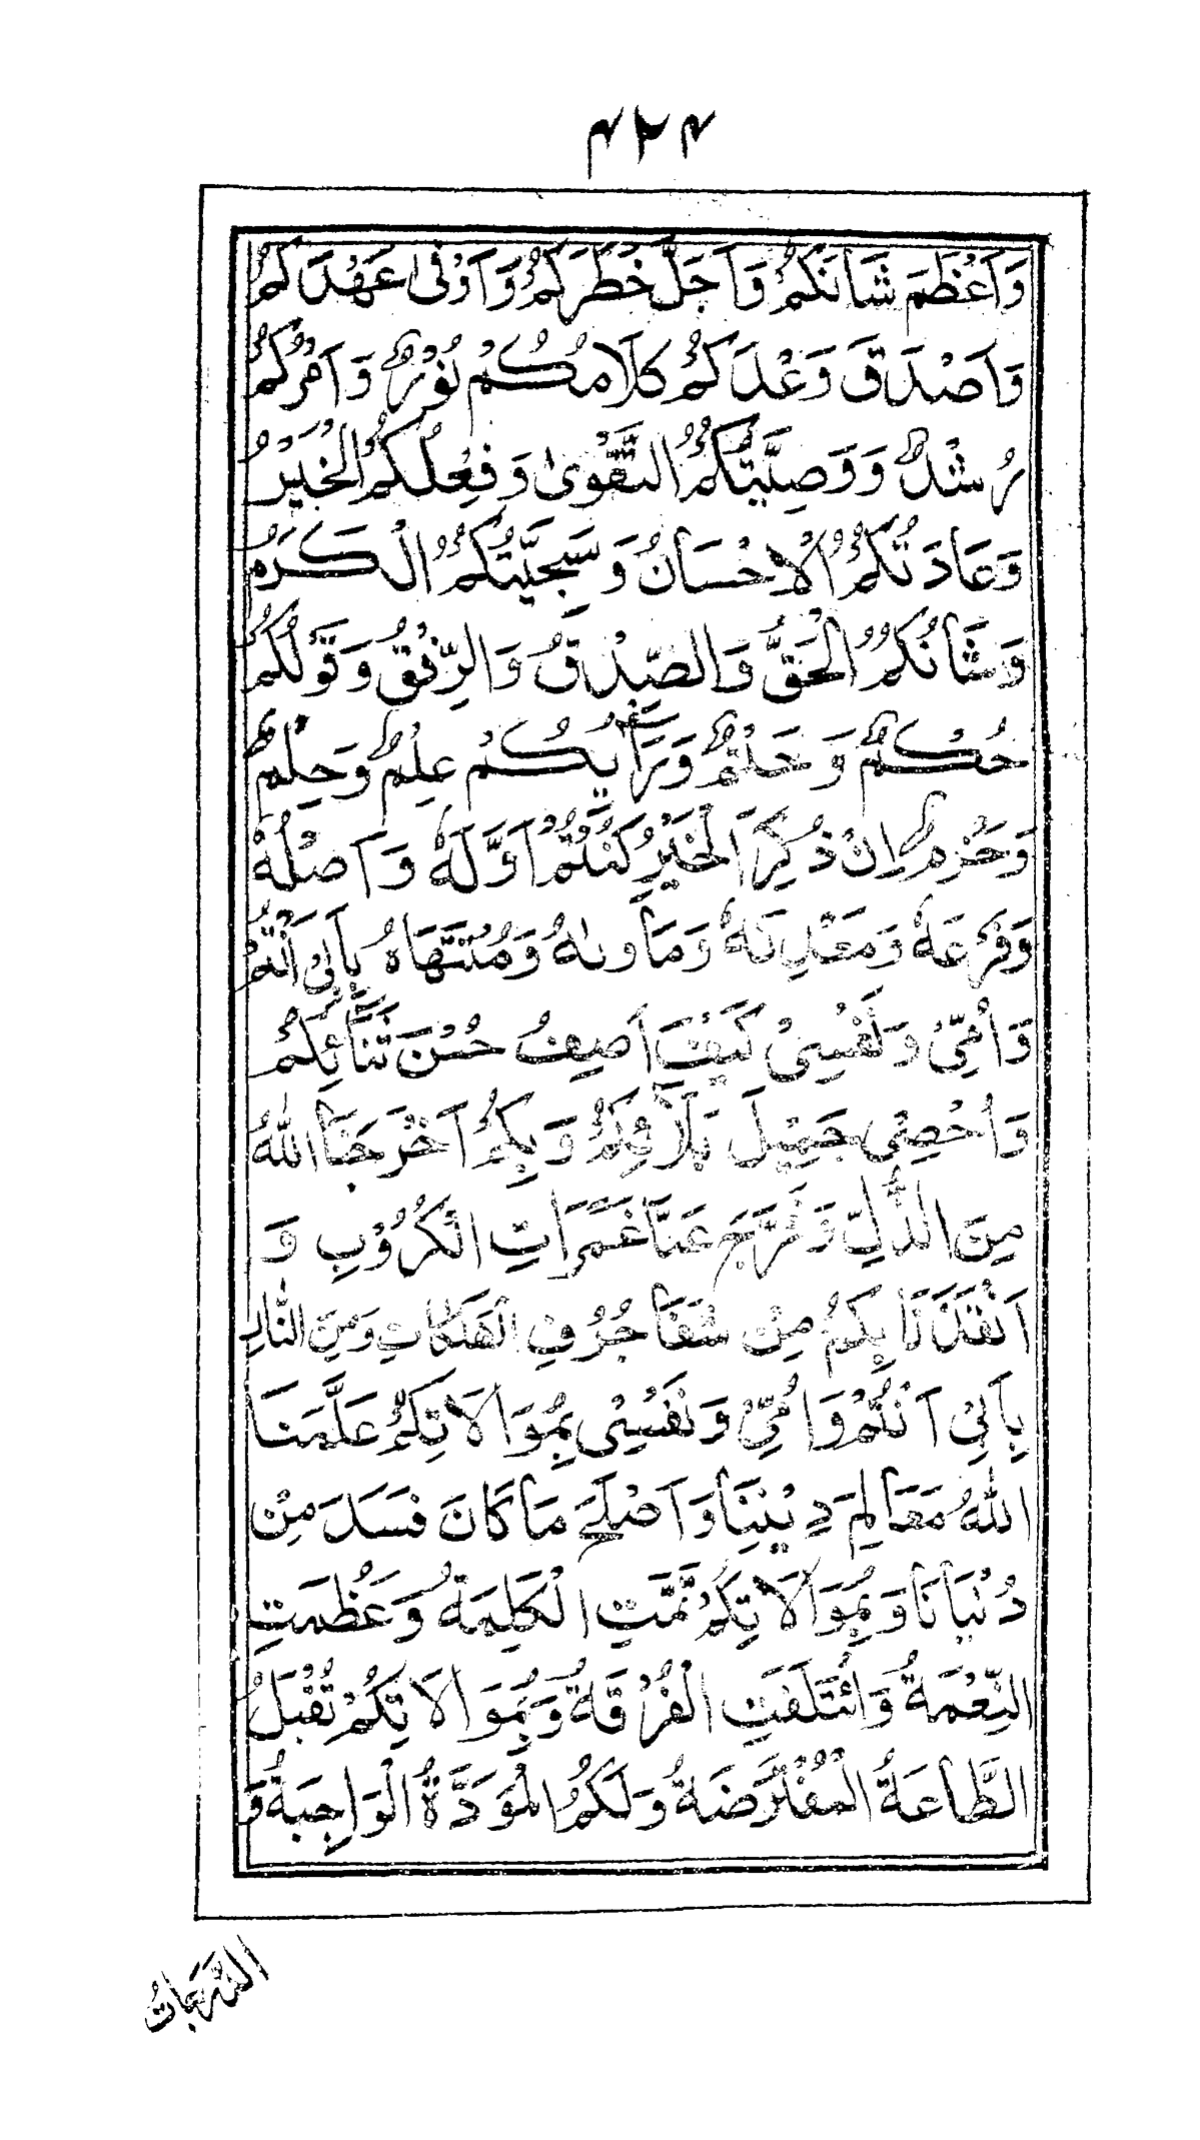 ۴۲۴
وَاَعْظَمَ شَأنَكُمْ وَاَجَلَّ خَطَرَكُمْ وَاَوْفٰی عَهْدَكُمْ
وَاَصْدَقَ وَعْدَكُمْ كَلَامُكُمْ نُوْرٌ وَاَمْرُكُمْ
رُشْدٌ وَوَصِيَّتُكُمُ التَّقْوىٰ وَفِعْلُكُمُ الْخَيْرُ
وَعَادَتُكُمُ الْاِحْسَانُ وَسَجِيَّتُكُمُ الْكَرَمُ
وَشَأنُكُمُ الْحَقُّ وَالصِّدْقُ وَالرِّفْقُ وَقَوْلُكُمْ
حُكْمٌ وَحَتْمٌ وَرَأيُكُمْ عِلْمٌ وَحِلْمٌ
وَحَزْمٌ اِنْ ذُكِرَ الْخَيْرُ كُنْتُمْ اَوَّلَهٗ وَاَصْلَهٗ
وَفَرْعَهٗ وَمَعْدِنَهٗ وَمَأوٰىهُ وَمُنْتَهَاهُ بِاَبِیْ اَنْتُمْ
وَاُمِّیْ وَنَفْسِیْ كَيْفَ اَصِفُ حُسْنَ ثَنَآئِكُمْ
وَاُحْصِیْ جَمِيْلَ بَلَآئِكُمْ وَبِكُمْ اَخْرَجَنَا اللّٰهُ
مِنَ الذُّلِّ وَفَرَّجَ عَنَّا غَمَرَاتِ الْكُرُوْبِ وَ
اَنْقَذَنَا بِكُمْ مِنْ شَفَا جُرُفِ الْهَلَكَاتِ وَمِنَ النَّارِ
بِاَبِیْ اَنْتُمْ وَاُمِّیْ وَنَفْسِیْ بِمُوَالَاتِكُمْ عَلَّمَنَا
اللّٰهُ مَعَالِمَ دِيْنِنَا وَاَصْلَحَ مَا كَانَ فَسَدَ مِنْ
دُنْيَانَا وَبِمُوَالَاتِكُمْ تَمَّتِ الْكَلِمَةُ وَعَظُمَتِ
النِّعْمَةُ وَائْتَلَفَتِ الْفُرْقَةُ وَبِمُوَالَاتِكُمْ تُقْبَلُ
الطَّاعَةُ الْمُفْتَرَضَةُ وَلَكُمُ الْمَوَدَّةُ الْوَاجِبَةُ وَ
الدَّرَجَاتُ